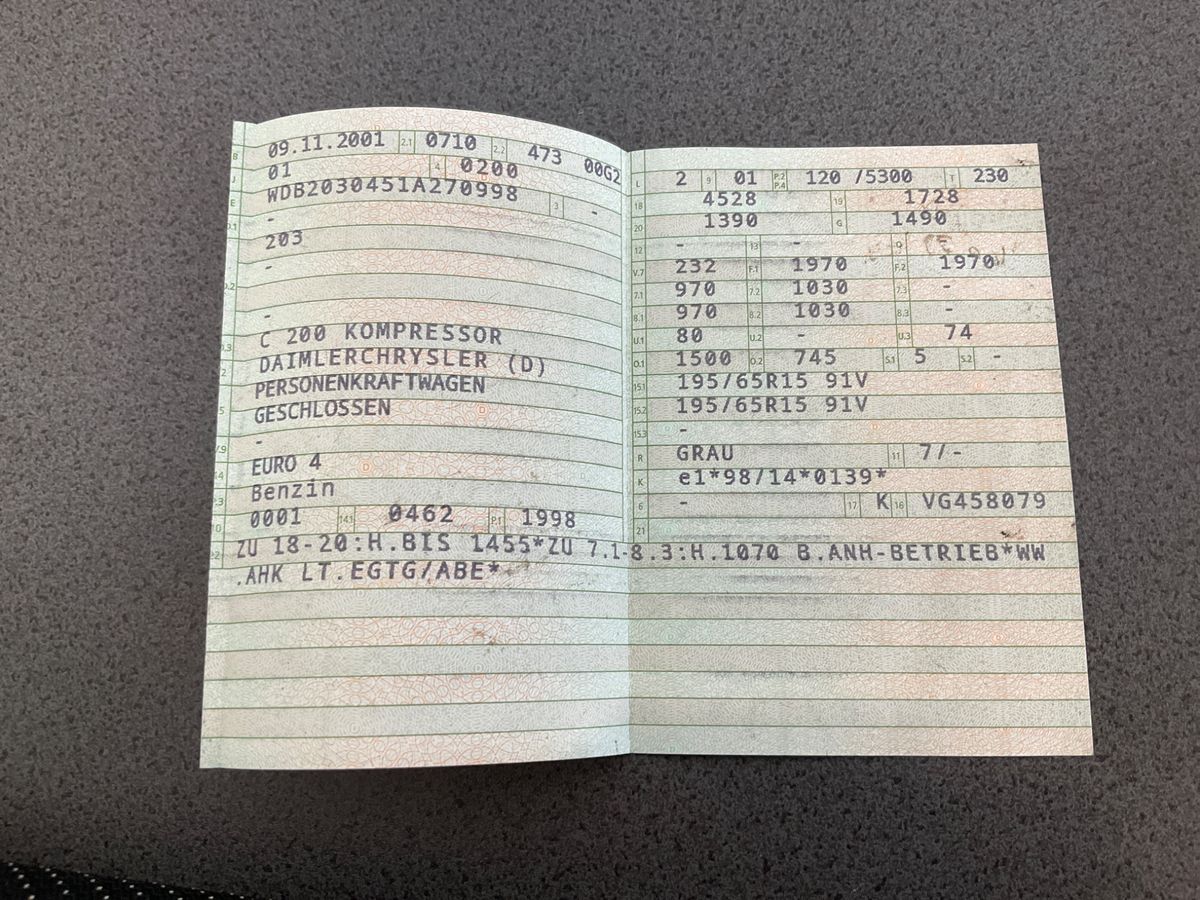 B 09.11.2001 2.1 0710 2.2 473 00G2
J 01 4 0200
E WDB2030451A270998 3 -
D.1 -
203
-
D.2
-
D.3 C 200 KOMPRESSOR
2 DAIMLERCHRYSLER (D)
PERSONENKRAFTWAGEN
5 GESCHLOSSEN
V.9 -
14 EURO 4
P.3 Benzin
10 0001 14.1 0462 P.1 1998
L 2 9 01 P.2 P.4 120 /5300 T 230
18 4528 19 1728
20 1390 G 1490
12 - 13 - Q -
V.7 232 F.1 1970 F.2 1970
7.1 970 7.2 1030 7.3 -
8.1 970 8.2 1030 8.3 -
U.1 80 U.2 - U.3 74
O.1 1500 O.2 745 S.1 5 S.2 -
15.1 195/65R15 91V
15.2 195/65R15 91V
15.3 -
R GRAU 11 7/-
K e1*98/14*0139*
6 - 17 K 16 VG458079
21
22 ZU 18-20:H.BIS 1455*ZU 7.1-8.3:H.1070 B.ANH-BETRIEB*WW
.AHK LT.EGTG/ABE*